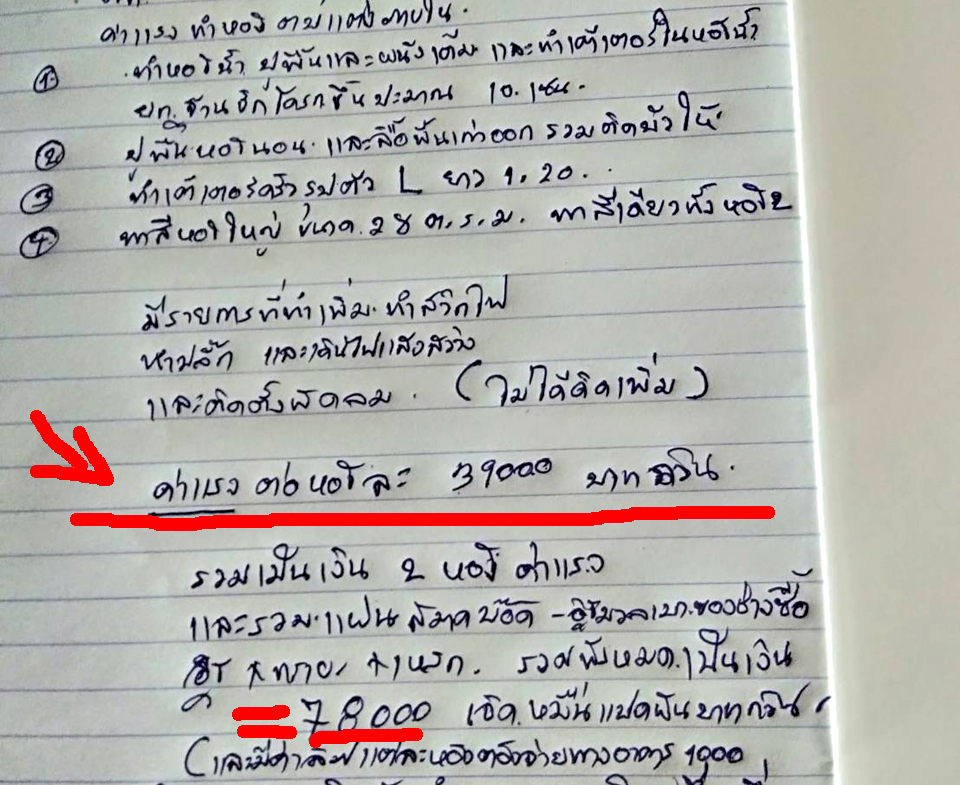 ค่าแรง ทำห้อง ตบแต่งภายใน.
① ทำห้องน้ำ ปูพื้นและผนังเดิม และทำเค้าเตอร์ในห้องน้ำ
ยก ฐานชักโครกขึ้นประมาณ 10. เซน.
② ปูพื้นห้องนอน. และลื้อพื้นเก่าออก รวมติดบัวให้
③ ทำเค้าเตอร์ครัว รูปตัว L ยาว 1.20..
④ ทาสีห้องใหญ่ ขนาด 28 ต.ร.ม. ทาสีเดียวทั้งห้อง
มีรายการที่ทำเพิ่ม. ทำสวิทไฟ
และเดินไฟแสงสว่าง
และติดตั้งพัดลม. (ไม่ได้คิดเพิ่ม)
ค่าแรง ต่อห้องละ 39000 บาทถ้วน.
รวมเป็นเงิน 2 ห้อง ค่าแรง
และรวม. แผ่นสมาดบ๊อด - ของช่างซื้อ
อิฐ ทราย. รวมทั้งหมด. เป็นเงิน
= 78000 เจ็ดหมื่นแปดพันบาทถ้วน
(และมีค่า แต่ละห้องต้องจ่ายทางอาคาร 1000